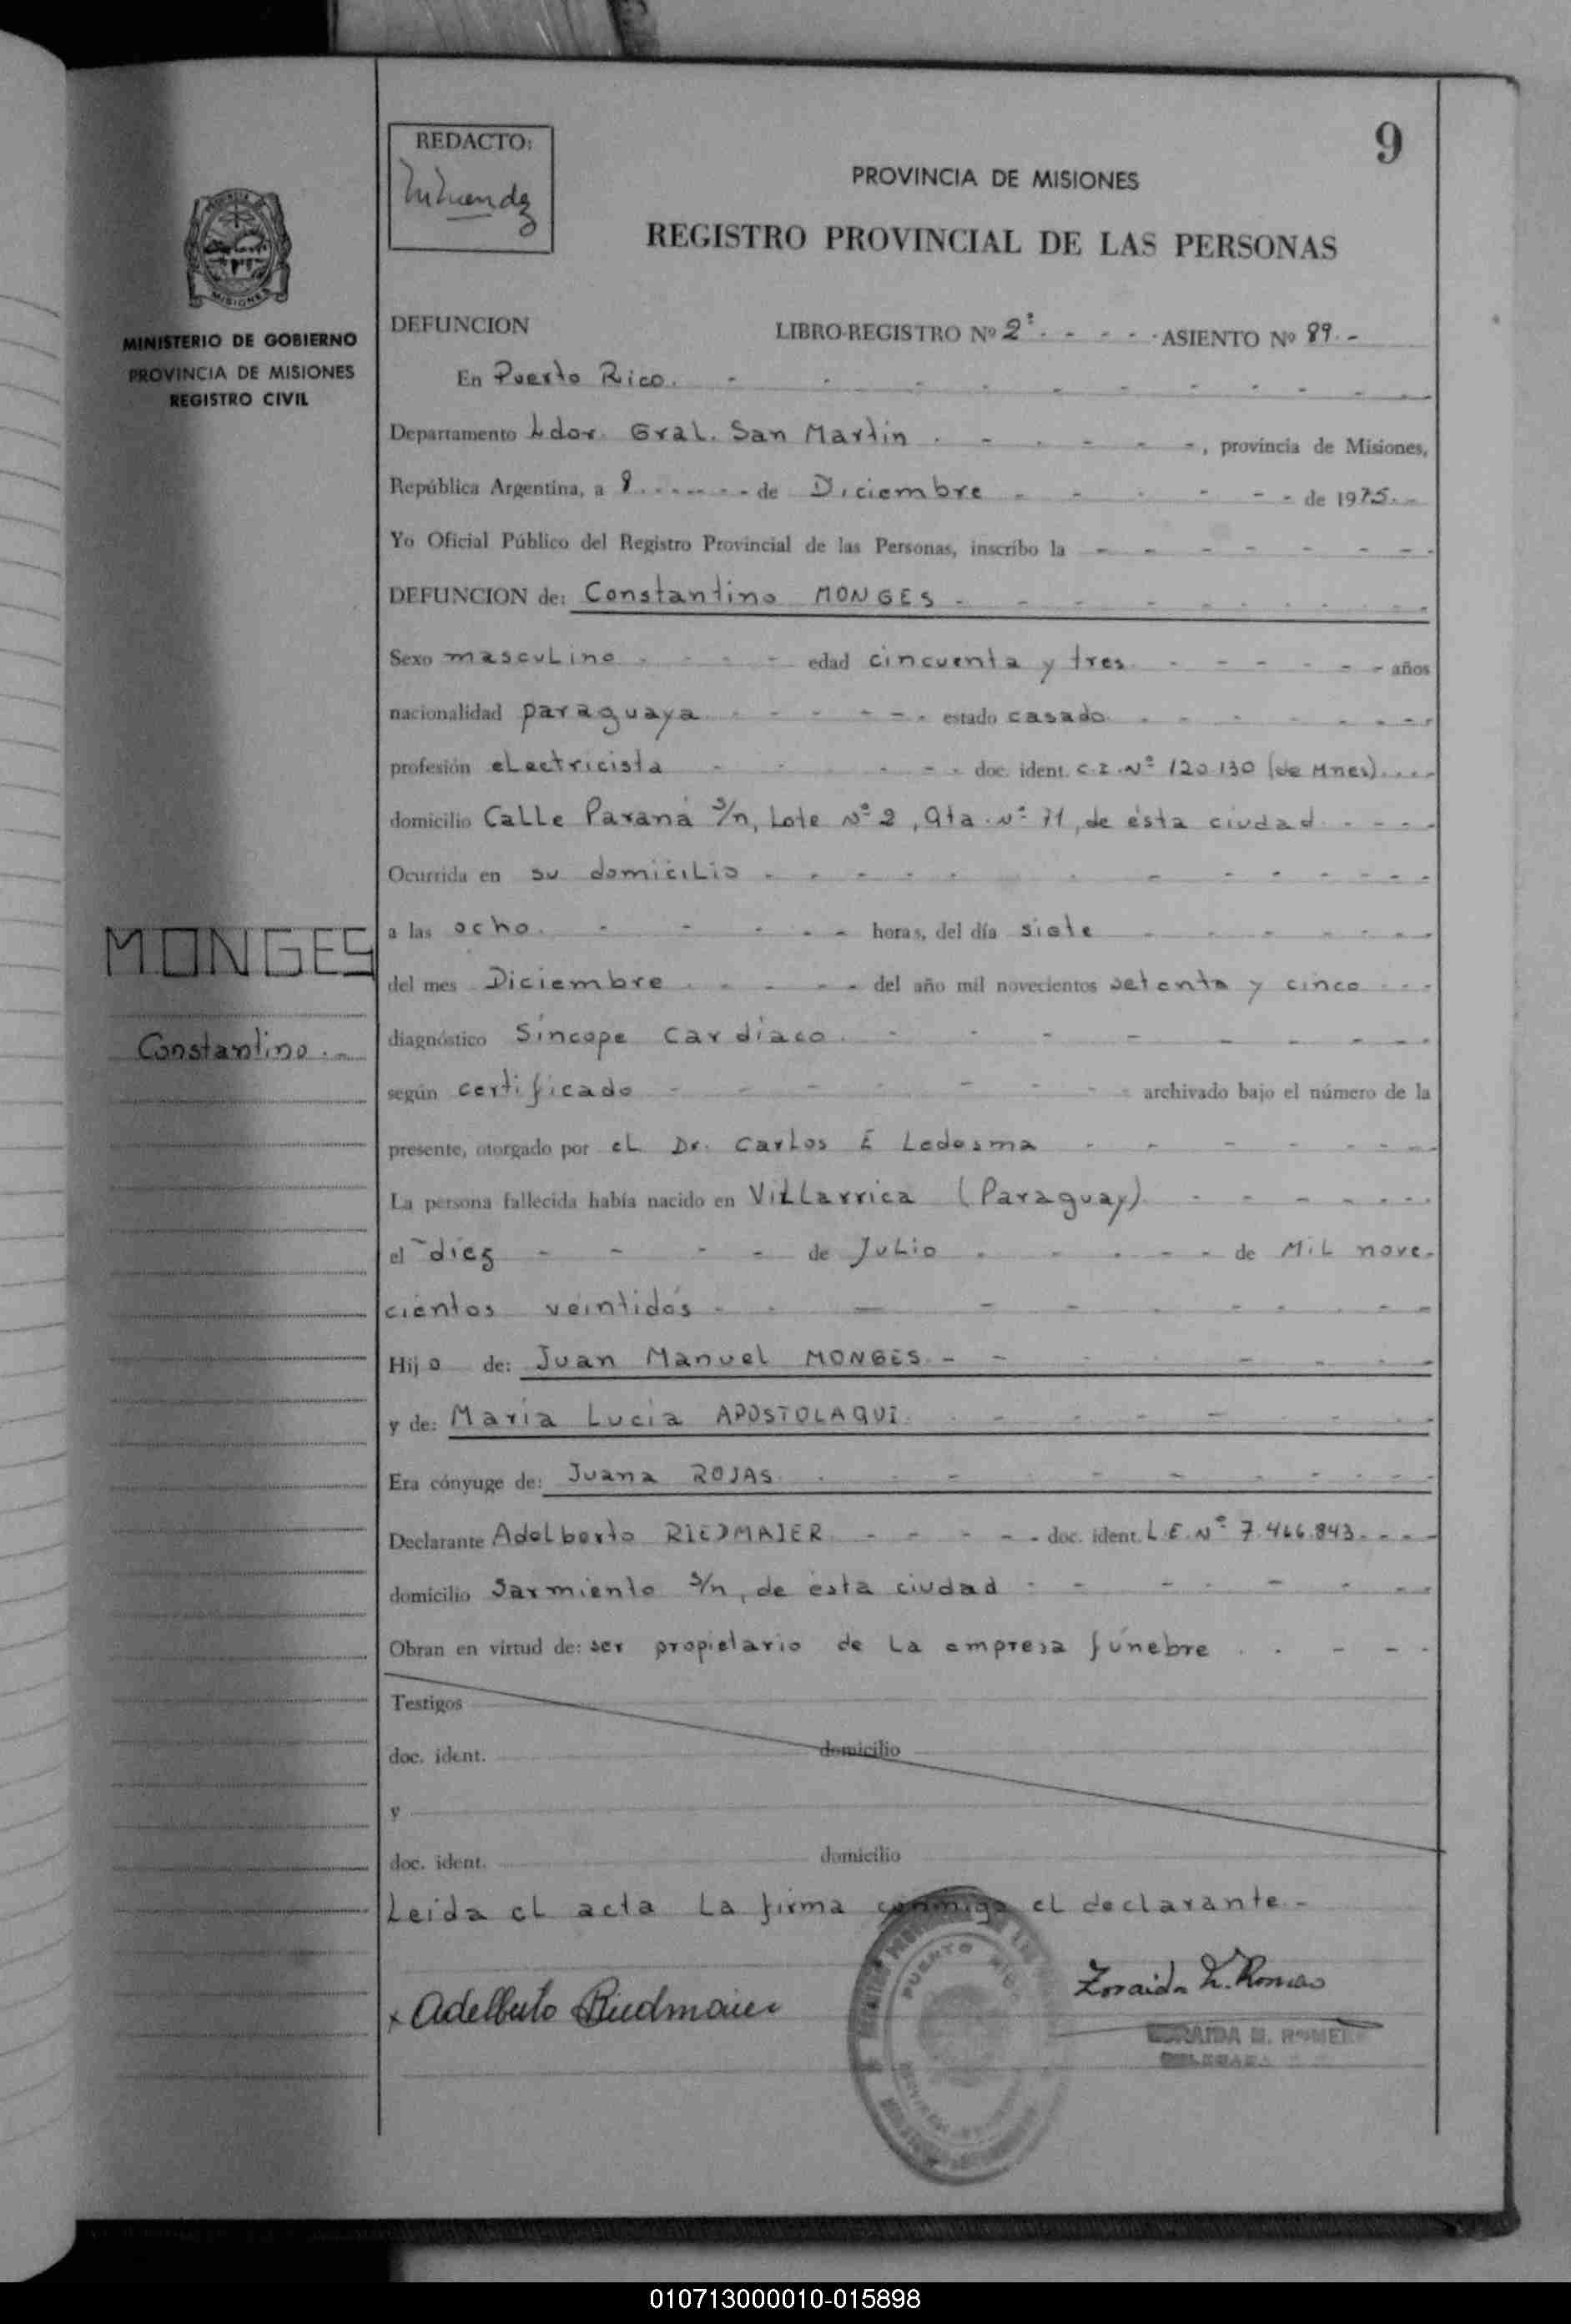 9
REDACTO:
PROVINCIA DE MISIONES
REGISTRO PROVINCIAL DE LAS PERSONAS
MISIONES
MINISTERIO DE GOBIERNO
PROVINCIA DE MISIONES
REGISTRO CIVIL
DEFUNCION LIBRO-REGISTRO Nº 2º - - - - - ASIENTO Nº 89.-
En Puerto Rico. - - - - - - - - - - -
Departamento Ldor. Gral. San Martin . - - - - -, provincia de Misiones,
República Argentina, a 8 - - - - - - de Diciembre - - - - - - de 1975.-
Yo Oficial Público del Registro Provincial de las Personas, inscribo la - - - - - - -
DEFUNCION de: Constantino MONGES - - - - - - - - -
Sexo masculino - - - - edad cincuenta y tres - - - - - - años
nacionalidad paraguaya - - - - - - estado casado. - - - - - - -
profesión electricista - - - - - doc. ident. C.I. Nº 120.130 (de Mnes) - - - -
domicilio Calle Paraná s/n, Lote Nº 2, Qta. Nº 71, de ésta ciudad - - - -
Ocurrida en su domicilio - - - - - - - - - - - -
a las ocho. - - - - - horas, del día siete - - - - - - -
MONGES
del mes Diciembre - - - - - del año mil novecientos setenta y cinco - - -
Constantino.-
diagnóstico Síncope cardíaco. - - - - - - - - -
según certificado - - - - - - - - archivado bajo el número de la
presente, otorgado por el Dr. Carlos E Ledesma - - - - - - -
La persona fallecida había nacido en Villarrica (Paraguay) - - - - - - - -
el diez - - - - de Julio . - - - - - de Mil nove-
cientos veintidós - - - - - - - - - -
Hijo de: Juan Manuel MONGES. - - - - - - - -
y de: María Lucía APOSTOLAQUI. - - - - - - - -
Era cónyuge de: Juana ROJAS. - - - - - - - - -
Declarante Adelberto RIEDMAIER - - - - - doc. ident. L.E. Nº 7.466.843 - - - -
domicilio Sarmiento s/n, de ésta ciudad - - - - - - - -
Obran en virtud de: ser propietario de la empresa fúnebre . - - - -
Testigos
doc. ident. domicilio
y
doc. ident. domicilio
Leída el acta la firma conmigo el declarante.-
PUERTO RICO
x Adelberto Riedmaier
Zoraida
ZORAIDA M. ROMERO
010713000010-015898